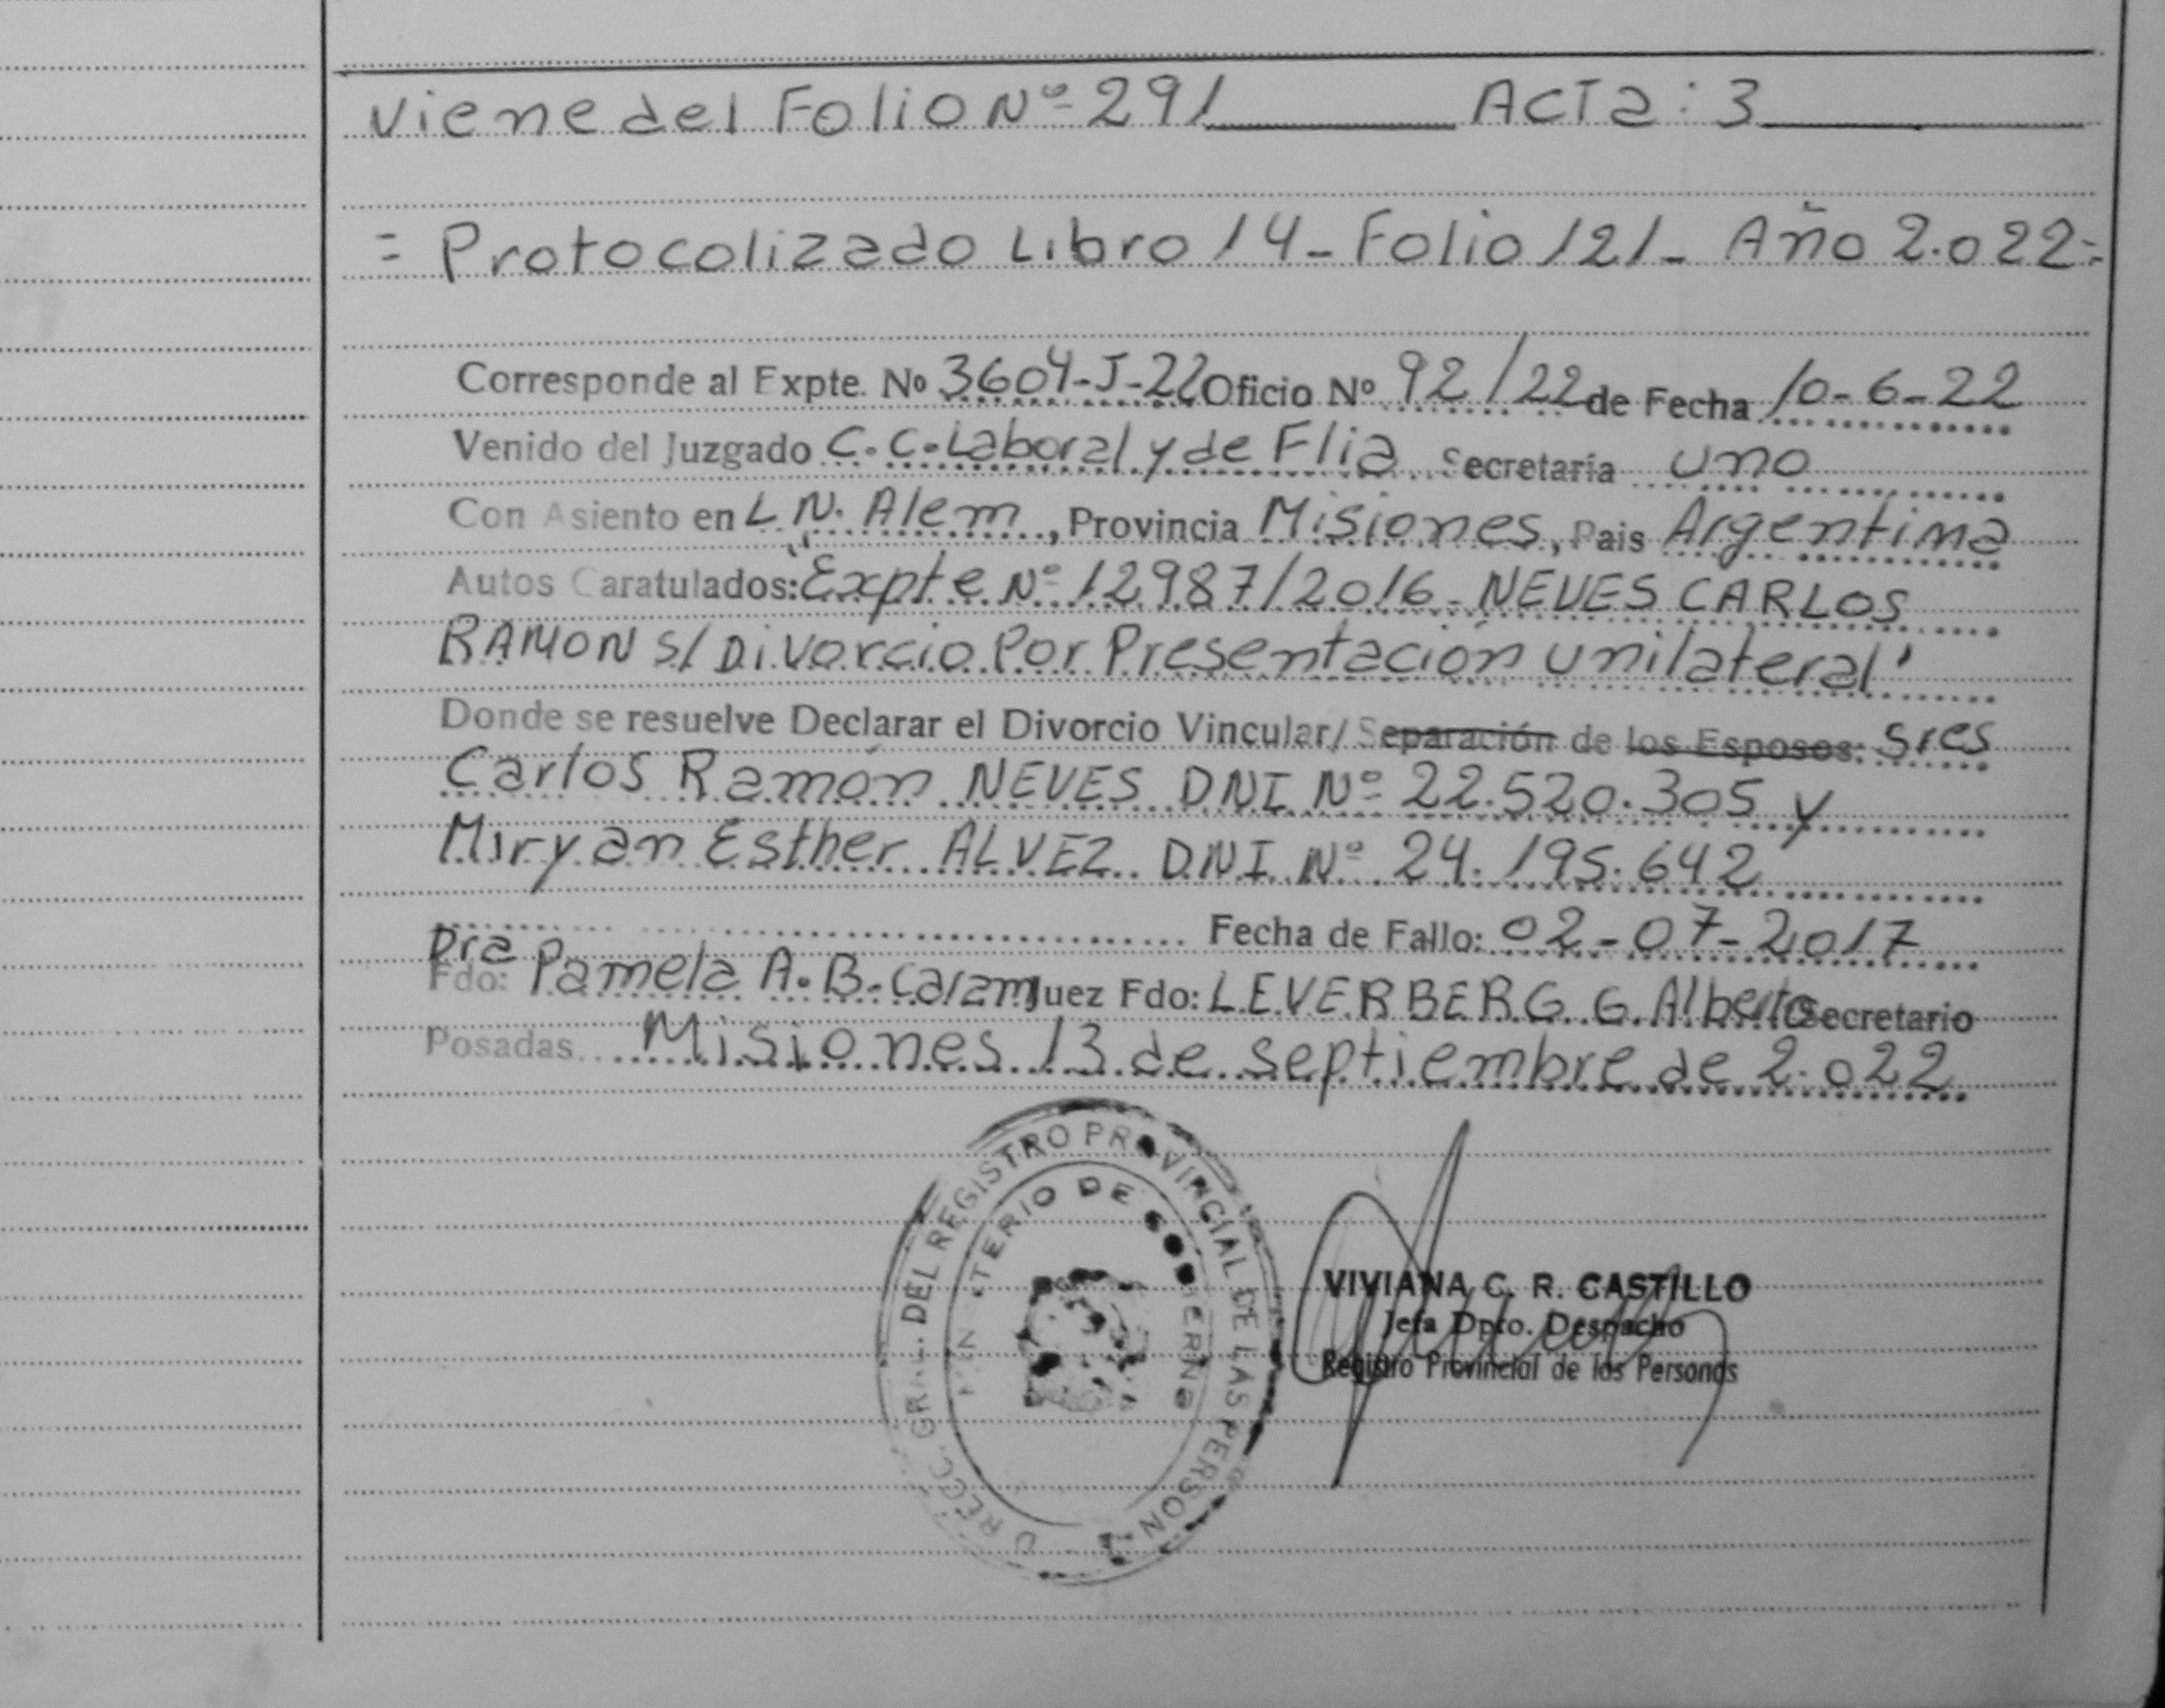 Viene del Folio Nº 291 Acta: 3
= Protocolizado Libro 14 - Folio 121 - Año 2.022 =
Corresponde al Expte. Nº 3604-J-22 Oficio Nº 92/22 de Fecha 10-6-22
Venido del Juzgado C.C. Laboral y de Flia Secretaría uno
Con Asiento en L.N. Alem, Provincia Misiones, Pais Argentina
Autos Caratulados: "Expte Nº 12987/2016 - NEVES CARLOS
RAMON S/ Divorcio Por Presentación unilateral"
Donde se resuelve Declarar el Divorcio Vincular/ Separación de los Esposos: Sres
Carlos Ramón NEVES DNI Nº 22.520.305 y
Miryan Esther ALVEZ D.N.I. Nº 24.195.642
Fecha de Fallo: 02-07-2017
Dra
Fdo: Pamela A. B. Juez Fdo: LEVERBERG G. Alberto Secretario
Posadas Misiones 13 de septiembre de 2.022
DIRECC. GRAL. DEL REGISTRO PROVINCIAL DE LAS PERSONAS
MINISTERIO DE GOBIERNO
VIVIANA C. R. CASTILLO
Jefa Dpto. Despacho
Registro Provincial de las Personas